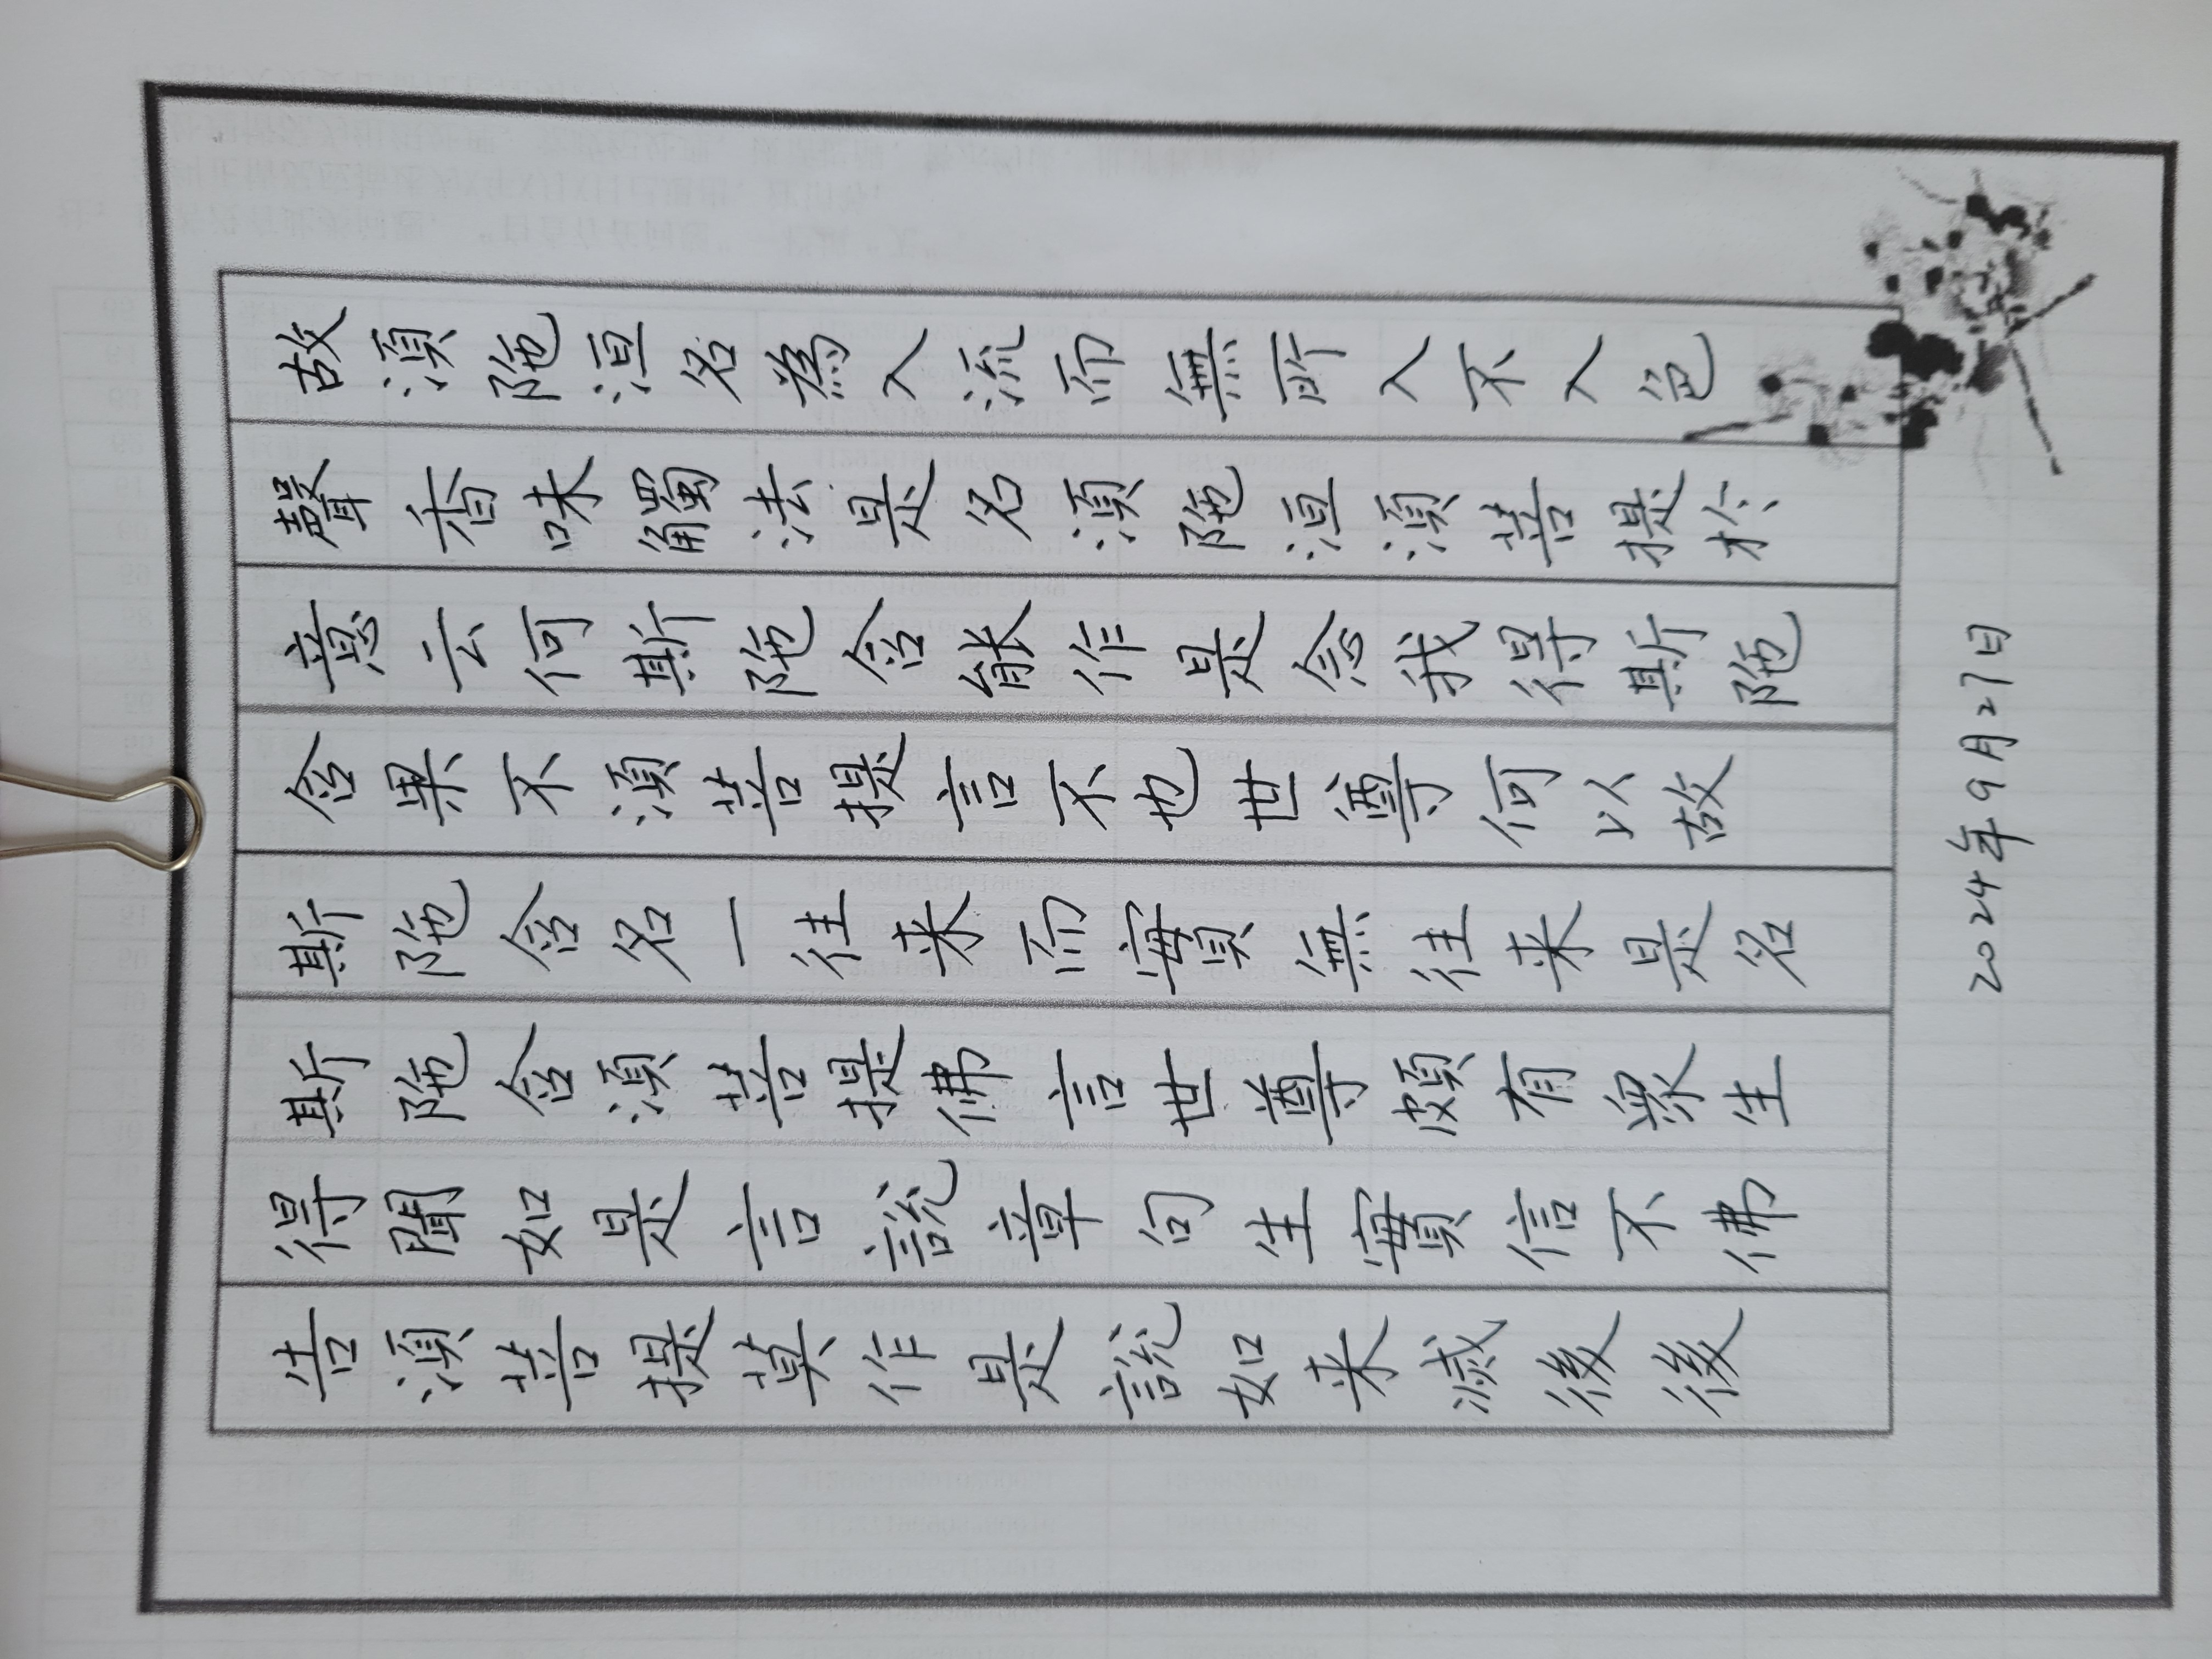 故湏陁洹名為入流而無所入不入色
聲香味觸法是名湏陁洹湏菩提於
意云何斯陁含能作是念我得斯陁
含果不湏菩提言不也世尊何以故
斯陁含名一往来而實無往来是名
斯陁含湏菩提佛言世尊頗有衆生
得聞如是言說章句生實信不佛
告湏菩提莫作是說如来滅後後
2024年9月27日